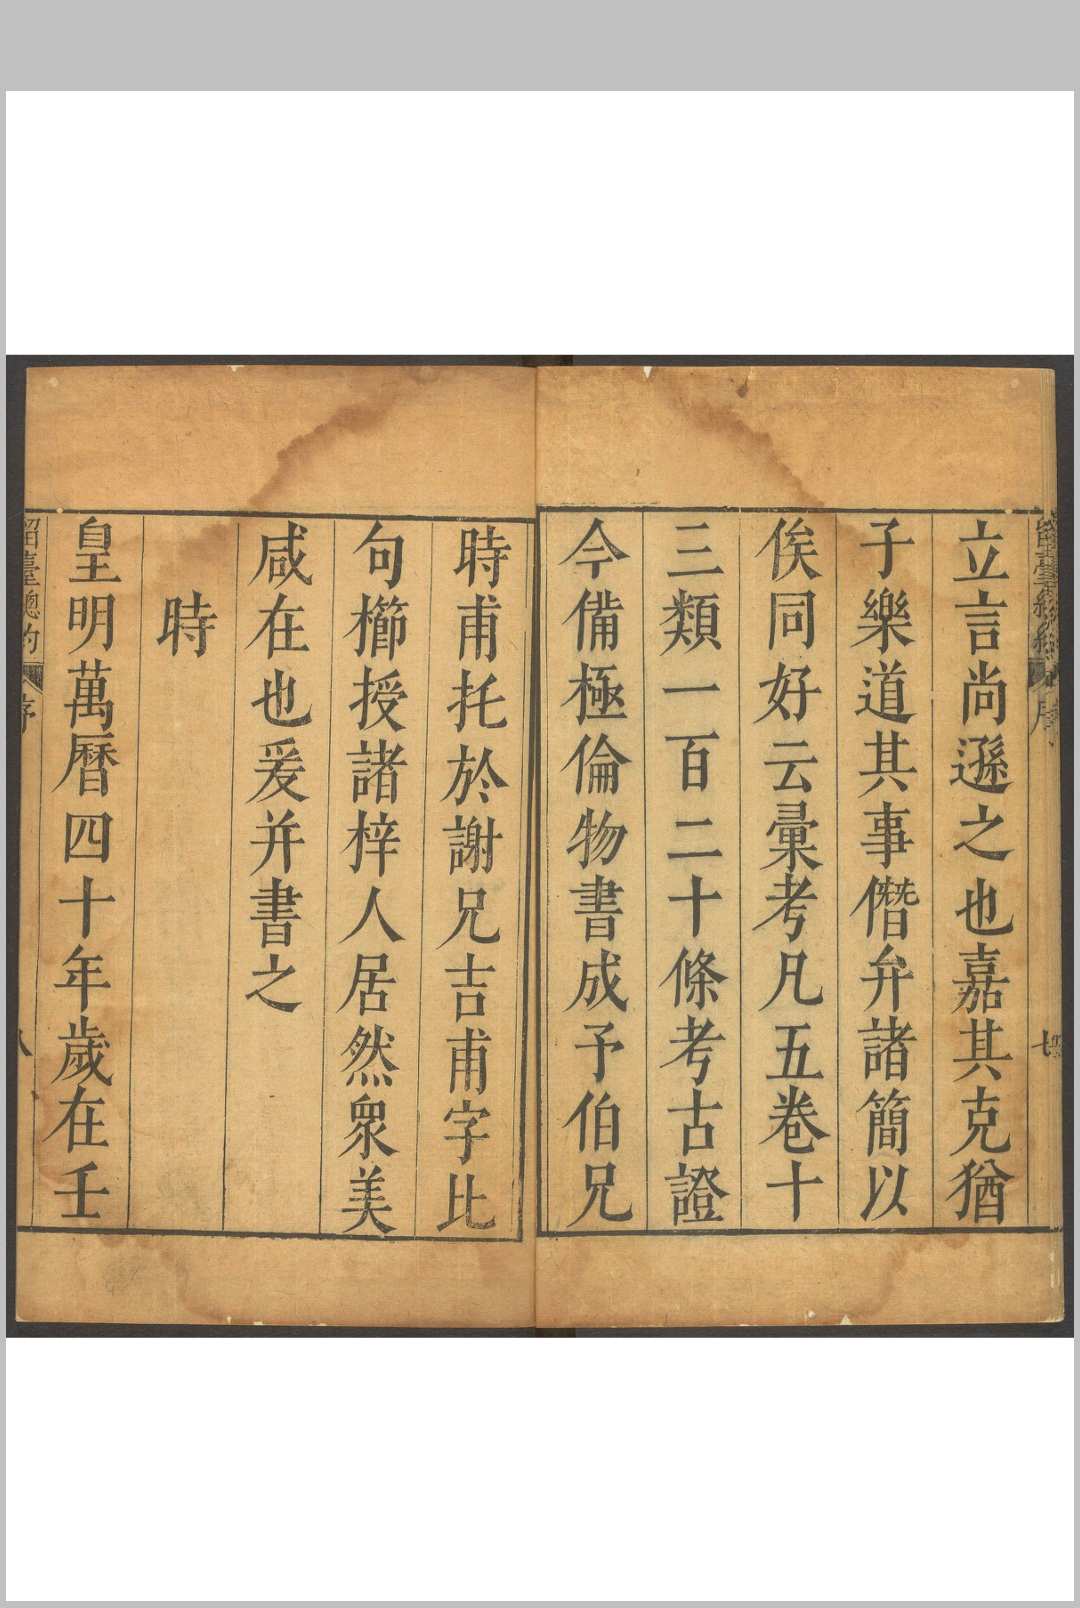 立言尚遜之也嘉其克猶
子樂道其事僭弁諸簡以
俟同好云彙考凡五卷十
三類一百二十條考古證
今備極倫物書成予伯兄
時甫托於謝兄吉甫字比
句櫛授諸梓人居然衆美
咸在也爰并書之
時
皇明萬曆四十年歲在壬
留臺總約
序
八